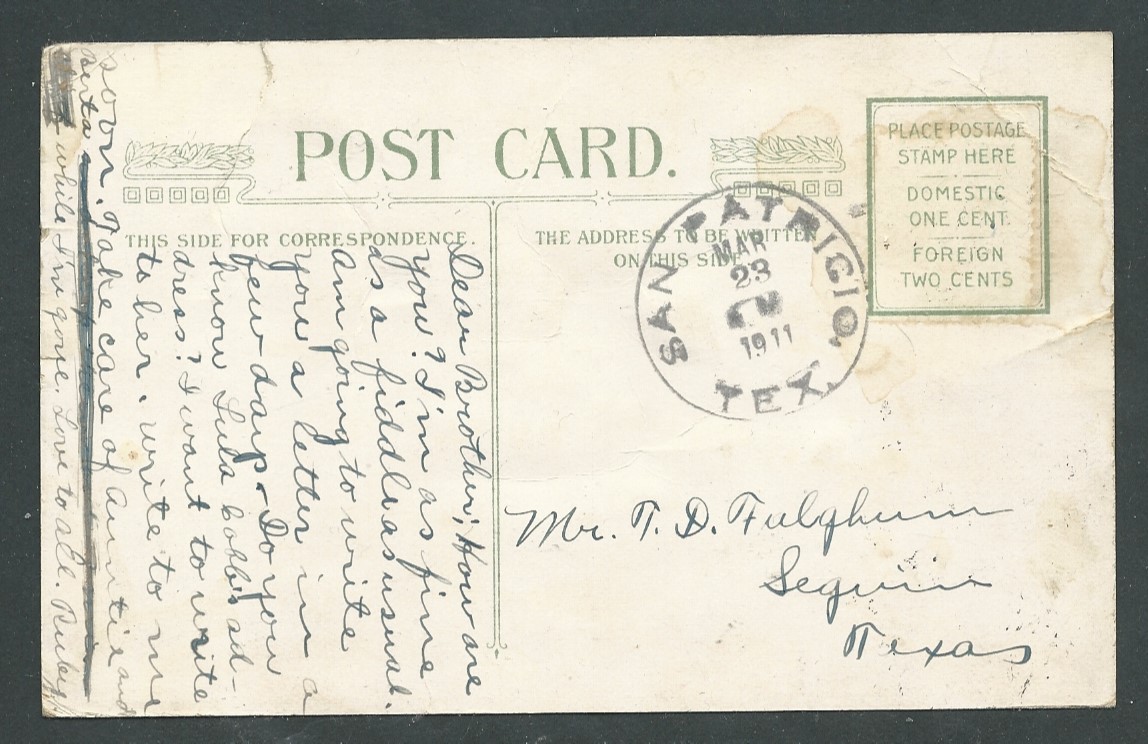 POST CARD.
THIS SIDE FOR CORRESPONDENCE.
THE ADDRESS TO BE WRITTEN
ON THIS SIDE
PLACE POSTAGE
STAMP HERE
DOMESTIC
ONE CENT.
FOREIGN
TWO CENTS
SAN PATRICIO,
MAR
23
1911
TEX.
Dear Brother; How are
you? I'm as fine
as a fiddle as usual.
Am going to write
you a letter in a
few days. Do you
know Lula Cobb's ad-
dress? I want to write
to her. write to me
soon. Take care of auntie and
while I'm gone. Love to all. Ruby
Mr. T. D. Fulghum
Seguin
Texas